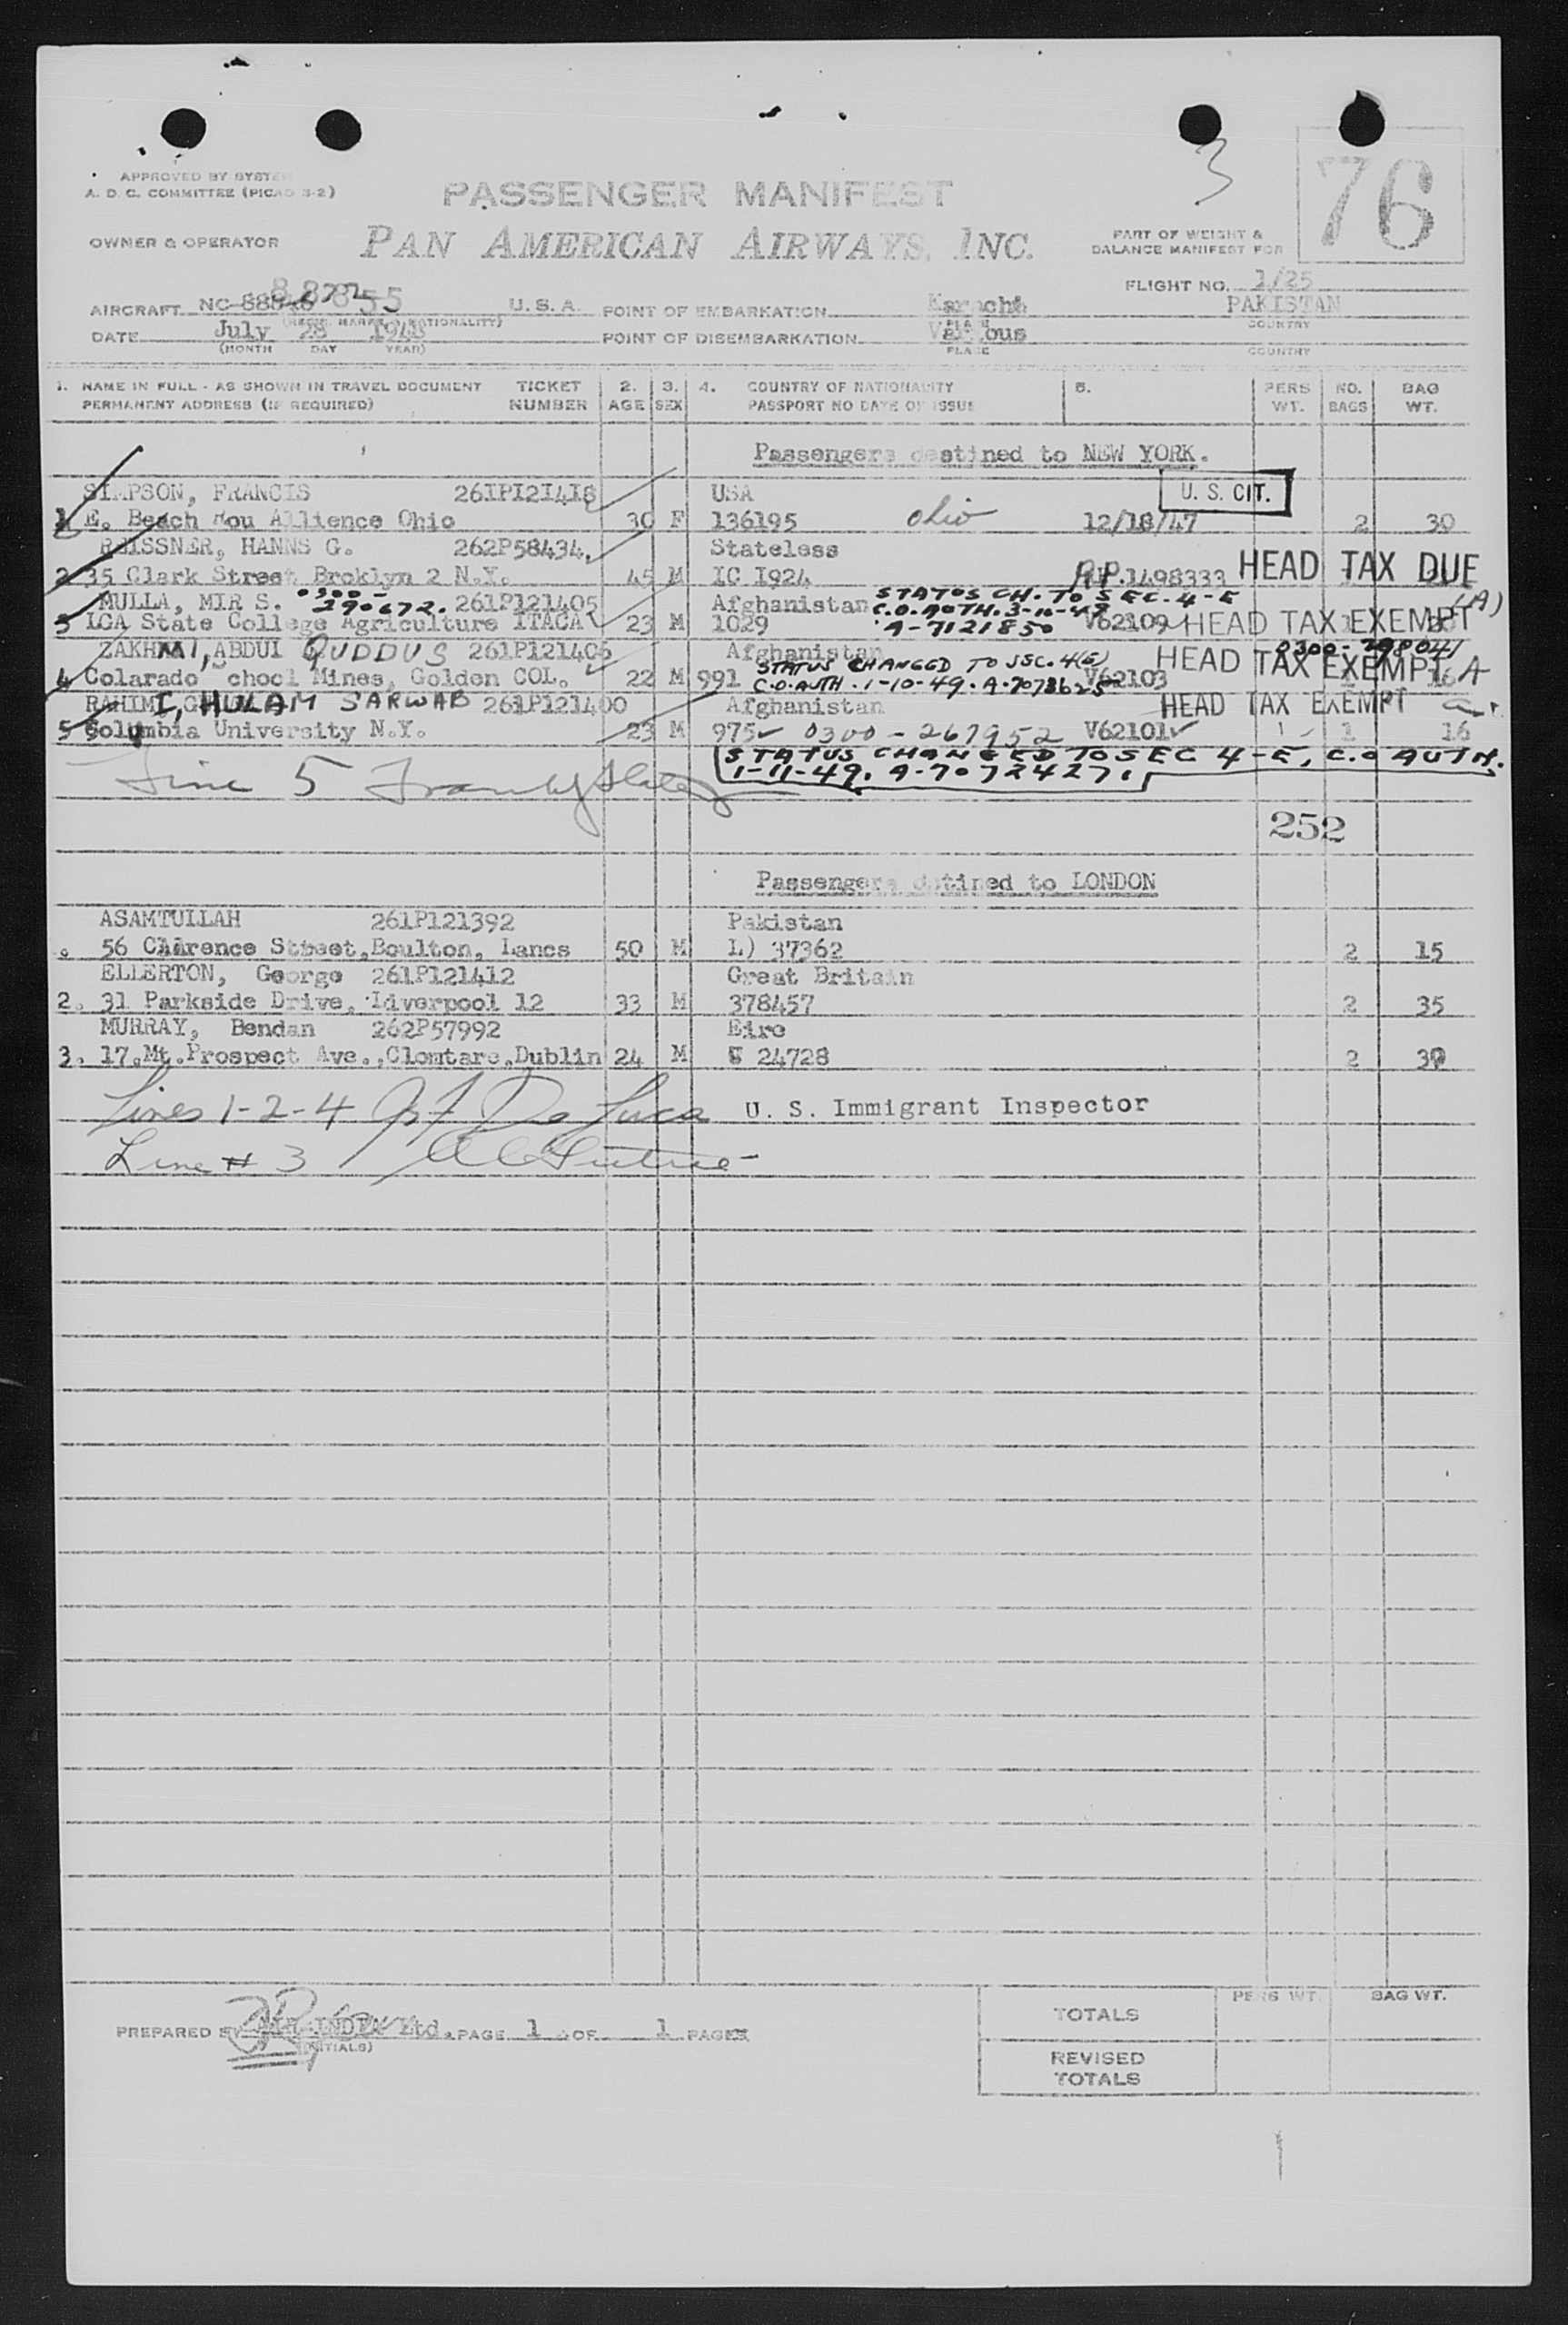 3
76
APPROVED BY SYSTEM
A. D. C. COMMITTEE (PICAO S-2)
PASSENGER MANIFEST
OWNER & OPERATOR
PAN AMERICAN AIRWAYS, INC.
PART OF WEIGHT &
BALANCE MANIFEST FOR
FLIGHT NO. 1/25
AIRCRAFT NC 88855 U. S. A. POINT OF EMBARKATION Karachi PAKISTAN
PLACE COUNTRY
DATE July 28 1948 POINT OF DISEMBARKATION Various
(MONTH DAY YEAR) PLACE COUNTRY
1. NAME IN FULL - AS SHOWN IN TRAVEL DOCUMENT TICKET 2. 3. 4. COUNTRY OF NATIONALITY 5. PERS NO. BAG
PERMANENT ADDRESS (IF REQUIRED) NUMBER AGE SEX PASSPORT NO DATE OF ISSUE WT. BAGS WT.
Passengers destined to NEW YORK.
SIMPSON, FRANCIS 261PI2I4I8 USA U. S. CIT.
1 E. Beach Mou Allience Ohio 30 F 136195 Ohio 12/18/47 2 30
REISSNER, HANNS G. 262P58434. Stateless
2 35 Clark Street Broklyn 2 N.Y. 45 M IC I924 R.P.1498333 HEAD TAX DUE
MULLA, MIR S. 0300-290672. 261P121405 Afghanistan STATUS CH. TO SEC. 4-E
3 LCA State College Agriculture ITACA 23 M 1029 C.O. AUTH. 3-10-49 A-7121850 V62109 HEAD TAX EXEMPT (A)
ZAKHMI, ABDUL QUDDUS 261P121406 Afghanistan 0300-298041
4 Colarado chool Mines, Golden COL. 22 M 991 STATUS CHANGED TO SEC. 4(E) V62103 HEAD TAX EXEMPT 16 A
C.O. AUTH. 1-10-49. A-7073625
RAHIMI, GHULAM SARWAB 261P121400 Afghanistan HEAD TAX EXEMPT
5 Columbia University N.Y. 23 M 975 0300-267952 V62101 1 16
STATUS CHANGED TO SEC 4-E, C.O AUTH.
1-11-49. A-7072427.
Line 5
252
Passengers dstined to LONDON
ASAMTULLAH 261P121392 Pakistan
56 Clarence Street, Boulton, Lancs 50 M L) 37362 2 15
ELLERTON, George 261P121412 Great Britain
2. 31 Parkside Drive, Liverpool 12 33 M 378457 2 35
MURRAY, Bendan 262P57992 Eire
3. 17,Mt.Prospect Ave.,Clomtare,Dublin 24 M 24728 2 30
Lines 1-2-4 De Luca U. S. Immigrant Inspector
Line # 3
PREPARED BY AIR INDIA Ltd. PAGE 1 OF 1 PAGES
(INITIALS)
PERS WT. BAG WT.
TOTALS
REVISED
TOTALS